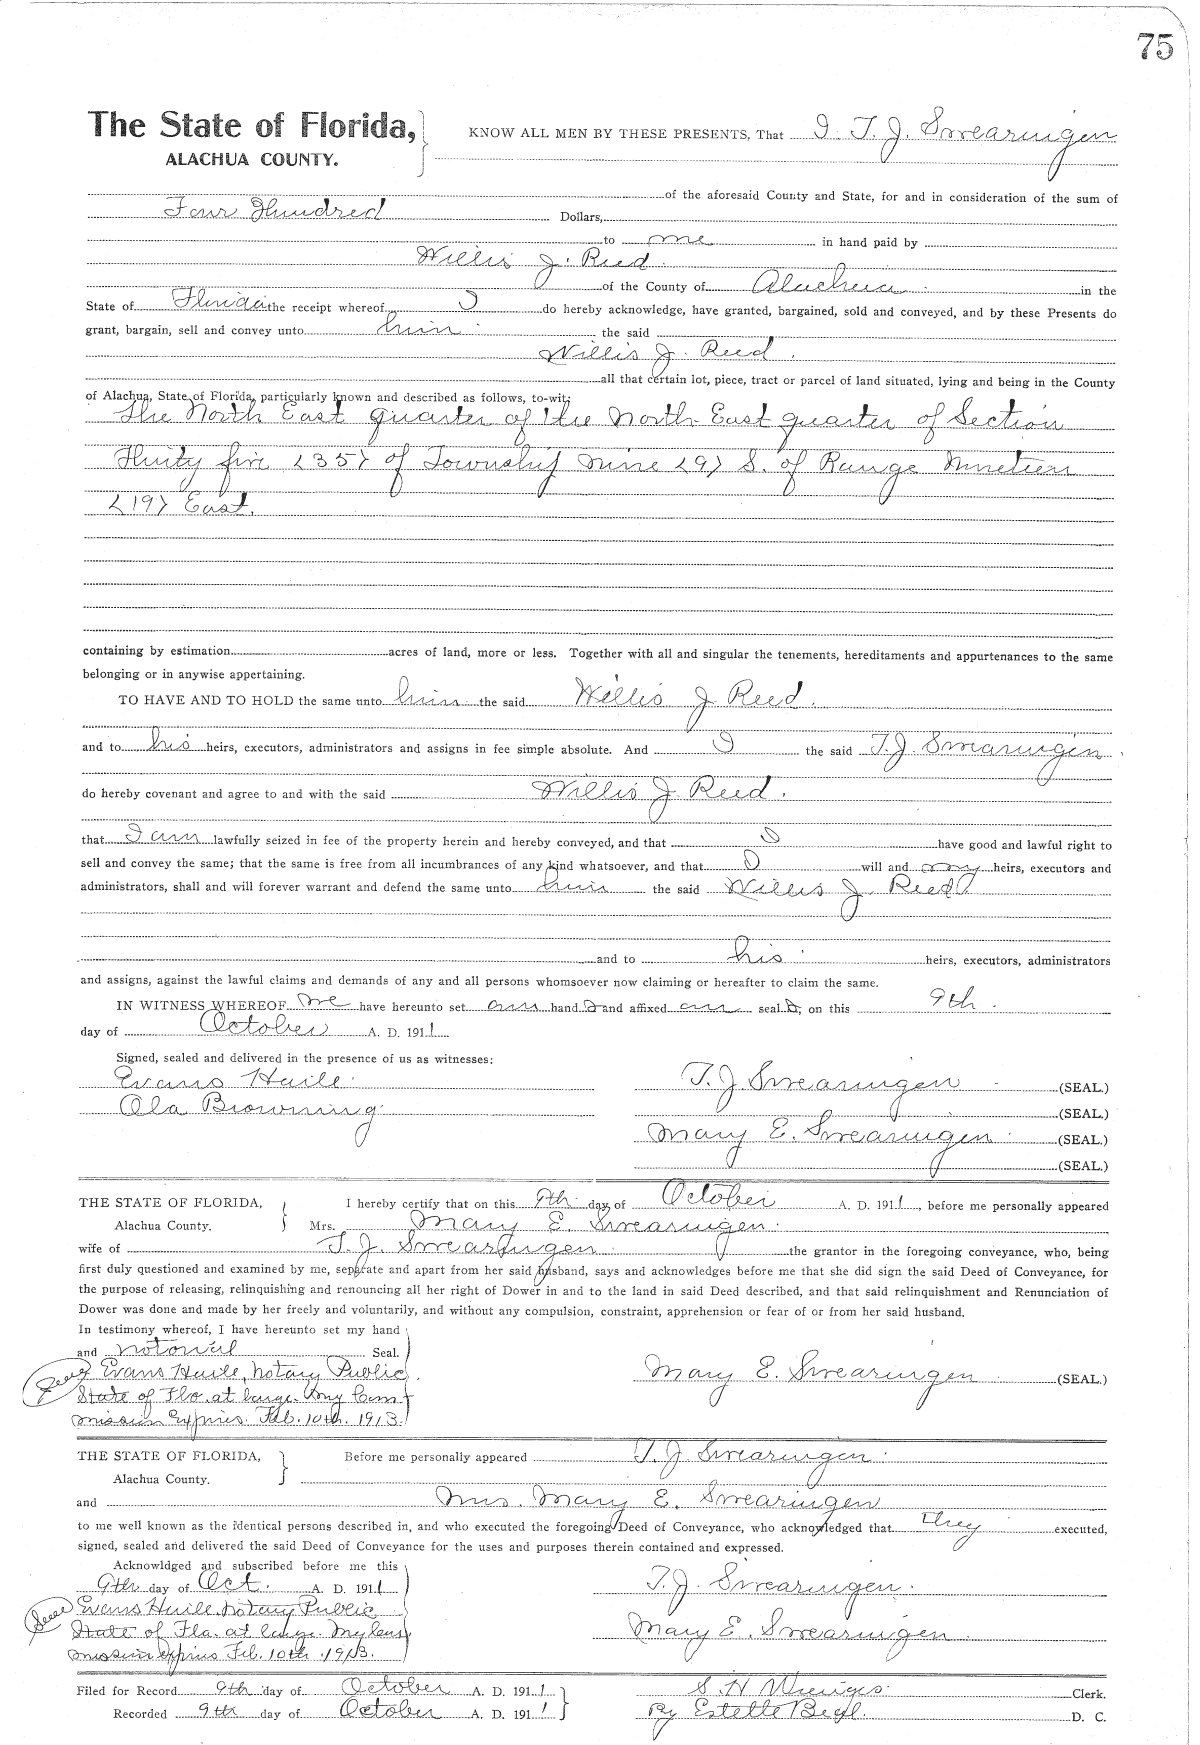 75
The State of Florida, KNOW ALL MEN BY THESE PRESENTS, That I T. J. Swearingen
ALACHUA COUNTY.
of the aforesaid County and State, for and in consideration of the sum of
Four Hundred Dollars,
to me in hand paid by
Willis J. Reed
of the County of Alachua in the
State of Florida the receipt whereof I do hereby acknowledge, have granted, bargained, sold and conveyed, and by these Presents do
grant, bargain, sell and convey unto him the said
Willis J. Reed.
all that certain lot, piece, tract or parcel of land situated, lying and being in the County
of Alachua, State of Florida, particularly known and described as follows, to-wit:
The North East quarter of the North East quarter of Section
Thirty five <35> of Township Nine <9> S. of Range Nineteen
<19> East.
containing by estimation acres of land, more or less. Together with all and singular the tenements, hereditaments and appurtenances to the same
belonging or in anywise appertaining.
TO HAVE AND TO HOLD the same unto him the said Willis J Reed.
and to his heirs, executors, administrators and assigns in fee simple absolute. And I the said T. J. Swearingen
do hereby covenant and agree to and with the said Willis J Reed.
that I am lawfully seized in fee of the property herein and hereby conveyed, and that I have good and lawful right to
sell and convey the same; that the same is free from all incumbrances of any kind whatsoever, and that I will and my heirs, executors and
administrators, shall and will forever warrant and defend the same unto him the said Willis J. Reed
and to his heirs, executors, administrators
and assigns, against the lawful claims and demands of any and all persons whomsoever now claiming or hereafter to claim the same.
IN WITNESS WHEREOF we have hereunto set our hand s and affixed our seal s, on this 9th
day of October A. D. 1911
Signed, sealed and delivered in the presence of us as witnesses:
Evans Haile T. J. Swearingen (SEAL.)
Ola Browning (SEAL.)
Mary E. Swearingen (SEAL.)
(SEAL.)
THE STATE OF FLORIDA, I hereby certify that on this 9th day of October A. D. 1911, before me personally appeared
Alachua County. Mrs. Mary E. Swearingen
wife of T. J. Swearingen the grantor in the foregoing conveyance, who, being
first duly questioned and examined by me, seperate and apart from her said husband, says and acknowledges before me that she did sign the said Deed of Conveyance, for
the purpose of releasing, relinquishing and renouncing all her right of Dower in and to the land in said Deed described, and that said relinquishment and Renunciation of
Dower was done and made by her freely and voluntarily, and without any compulsion, constraint, apprehension or fear of or from her said husband.
In testimony whereof, I have hereunto set my hand
and notorial Seal.
Seal Evans Haile, Notary Public, Mary E. Swearingen (SEAL.)
State of Flo. at large. My Com
mission Expires Feb. 10th. 1913.
THE STATE OF FLORIDA, Before me personally appeared T. J. Swearingen
Alachua County.
and Mrs. Mary E. Swearingen
to me well known as the identical persons described in, and who executed the foregoing Deed of Conveyance, who acknowledged that they executed,
signed, sealed and delivered the said Deed of Conveyance for the uses and purposes therein contained and expressed.
Acknowldged and subscribed before me this
9th day of Oct. A. D. 1911 T. J. Swearingen.
Seal Evans Haile, Notary Public
State of Fla. at large. My Com Mary E. Swearingen
mission expires Feb. 10th 1913.
Filed for Record 9th day of October A. D. 1911 S. H. Wienges Clerk.
Recorded 9th day of October A. D. 1911 By Estelle D. C.